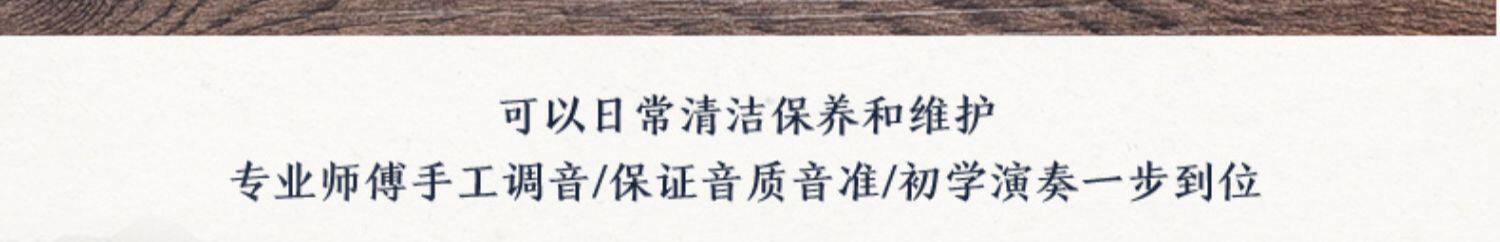 可以日常清洁保养和维护
专业师傅手工调音/保证音质音准/初学演奏一步到位